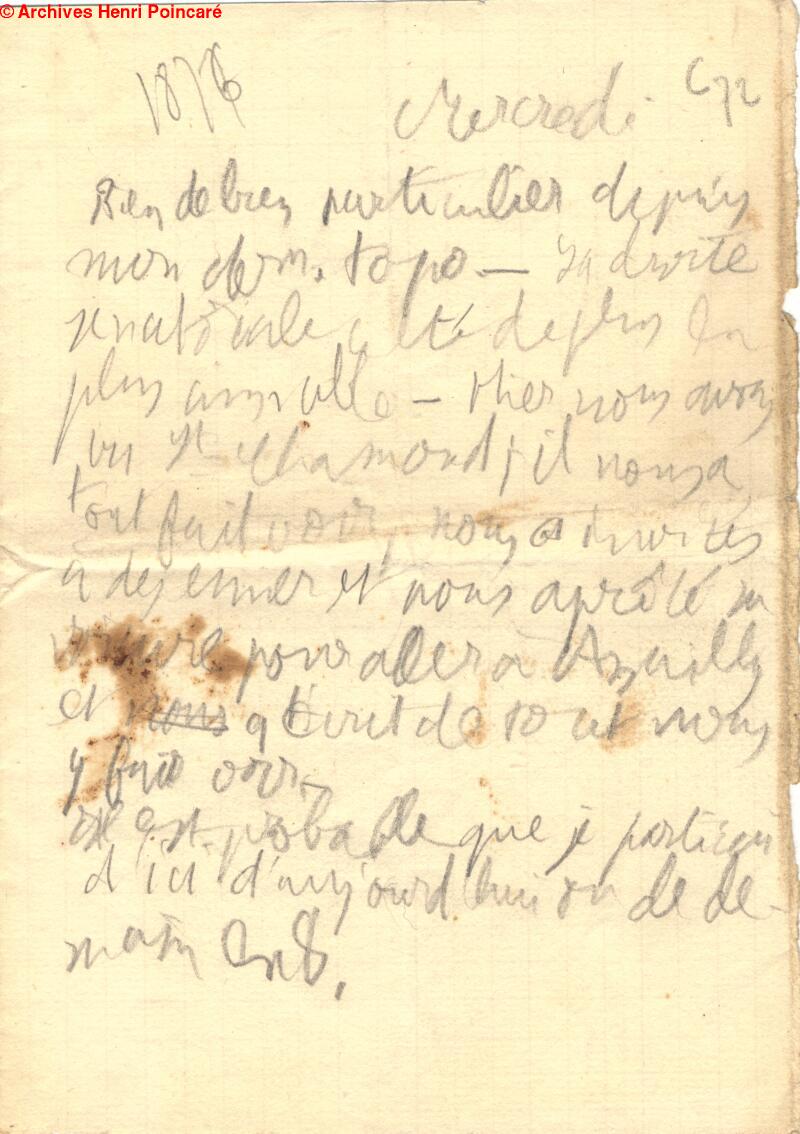 © Archives Henri Poincaré
1876
C72
Mercredi
Rien de bien particulier depuis
mon dern. topo. — La droite
senatoriale a été de plus en
plus aimable — Hier nous avons
vu St Chamond ; il nous a
tout fait voir, nous a invités
à dejeuner et nous a prêté sa
voiture pour aller à Assailly
et nous a écrit de tout nous
y faire voir.
Il est probable que je partirai
d'ici d'aujourd'hui ou de de-
main en 8.